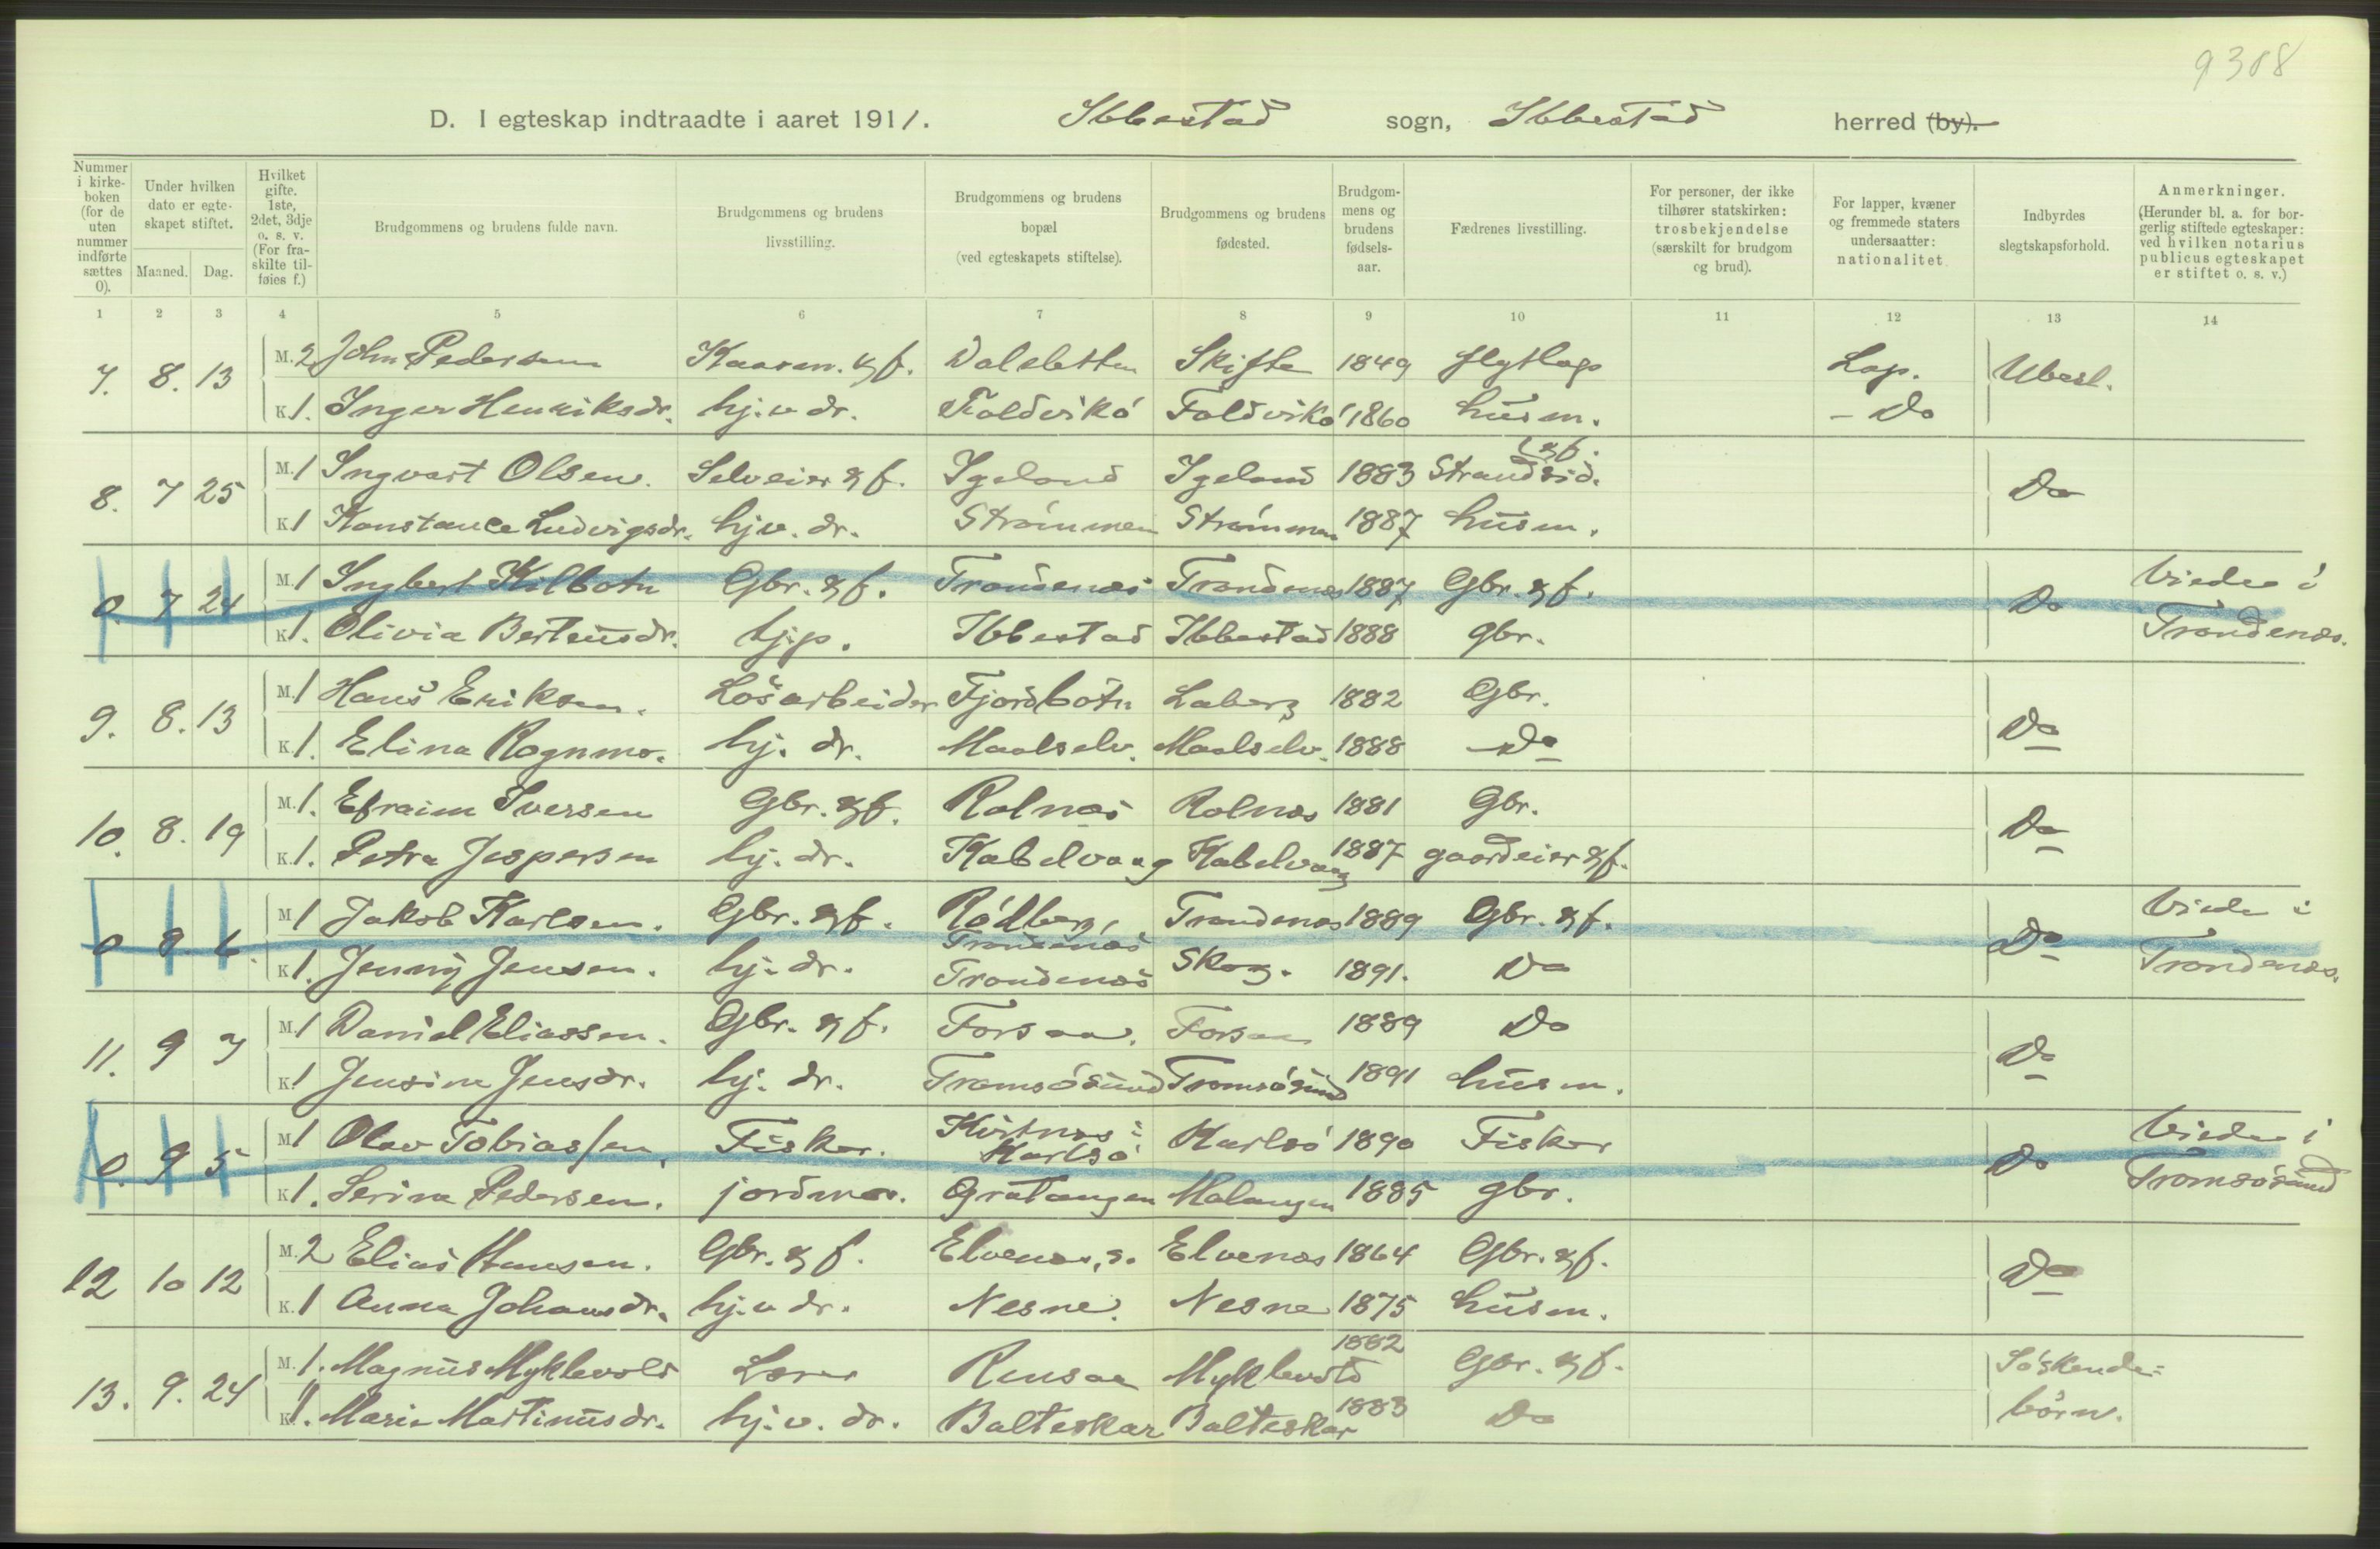 9308
D. I egteskap indtraadte i aaret 1911. Ibbestad sogn, Ibbestad herred (by).
Nummer i kirke-boken (for de uten nummer indførte sættes 0).
Under hvilken dato er egte-skapet stiftet.
Maaned. Dag.
Hvilket gifte. 1ste, 2det, 3dje o. s. v. (For fra-skilte til-føies f.)
Brudgommens og brudens fulde navn.
Brudgommens og brudens livsstilling.
Brudgommens og brudens bopæl (ved egteskapets stiftelse).
Brudgommens og brudens fødested.
Brudgom-mens og brudens fødsels-aar.
Fædrenes livsstilling.
For personer, der ikke tilhører statskirken: trosbekjendelse (særskilt for brudgom og brud).
For lapper, kvæner og fremmede staters undersaatter: nationalitet
Indbyrdes slegtskapsforhold.
Anmerkninger. (Herunder bl. a. for bor-gerlig stiftede egteskaper: ved hvilken notarius publicus egteskapet er stiftet o. s. v.)
1 2 3 4 5 6 7 8 9 10 11 12 13 14
7. 8. 13 M. 2 John Pedersen Kaaren. & f. Dalsletten Skifte 1849 flytlap Lap. Ubesl.
K 1. Inger Henriksdr. hj. v dr. Foldvikó Foldvikó 1860 husm. - Do
8. 7 25 M. 1 Ingvart Olsen. Selveier & f. Igeland Igeland 1883 Strandsid. & f. Do
K 1 Konstance Ludvigsdr. hj v. dr. Strømmen Strømmen 1887 husm.
0. 7 24 M. 1 Ingbert Kilbotn Gbr. & f. Trondenæs Trondenæs 1887 Gbr. & f. Do Viede i
K 1. Olivia Berteusdr. hjp. Ibbestad Ibbestad 1888 gbr. Trondenæs.
9. 8. 13 M. 1 Hans Eriksen. Løsarbeider Fjordbotn Laberg 1882 Gbr. Do
K. 1. Elina Rognmo. hj. dr. Maalselv. Maalselv. 1888 Do
10. 8. 19 M. 1. Efraim Iversen Gbr. & f. Rolnæs Rolnæs 1881 Gbr. Do
K. 1. Petra Jespersen hj. dr. Kabelvaag Kabelvaag 1887 gaardeier & f.
0 8 6. M 1 Jakob Karlsen. Gbr. & f. Rødberg, Trondenæs Trondenæs 1889 Gbr. & f. Do Viede i
K 1. Jenny Jensen. hj. dr. Trondenæs Skog. 1891. Do Trondenæs.
11. 9 7 M. 1 Daniel Eliassen. Gbr. & f. Forsaa. Forsaa 1889 Do Do
K 1 Jensine Jensdr. hj. dr. Tromsøsund Tromsøsund 1891 husm.
0. 9 5 M 1 Olav Tobiassen, Fisker. Kvitnæs i Karlsø Karlsø 1890 Fisker Do Viede i
K 1. Serina Pedersen. jordmor. Gratangen Malangen 1885 gbr. Tromsøsund
12 10 12 M. 2 Elias Hansen. Gbr. & f. Elvenæs, s. Elvenæs 1864 Gbr. & f. Do
K. 1 Anna Johansdr. hj. v dr. Nesne. Nesne 1875 husm.
13. 9. 24 M. 1. Magnus Myklevold Lærer Rensaa Myklevold 1882 Gbr. & f. Søskende=
K 1. Marie Martinusdr. hj. v. dr. Balteskar Balteskar 1883 Do børn.